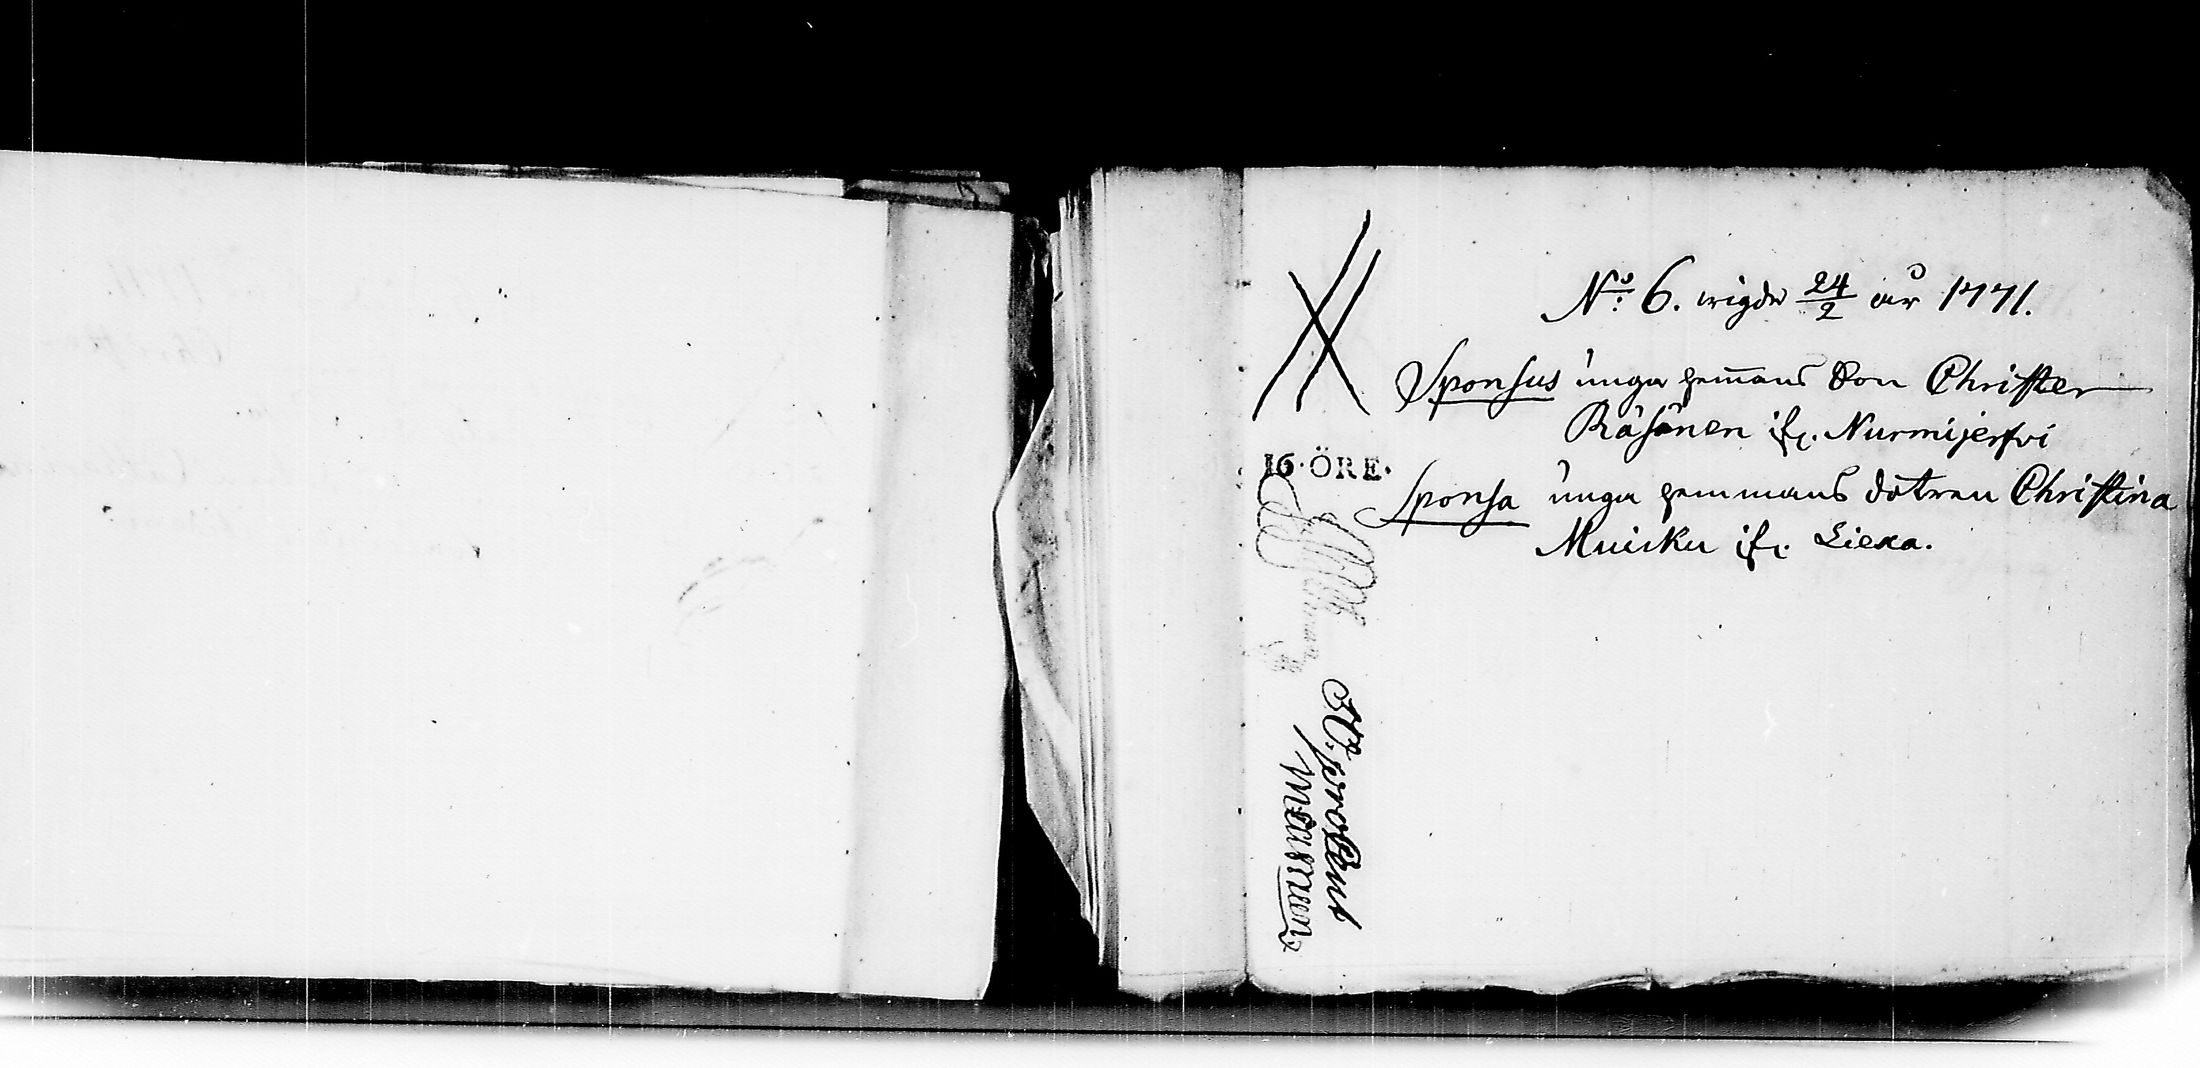 No: 6. wigde 24/2 år 1771.
Sponsus unga hemans Son Christer
Räsänen ifr. Nurmijerfvi
16·ÖRE.
Sponsa unga hemmans dötren Christina
Muicku ifr. Liexa.